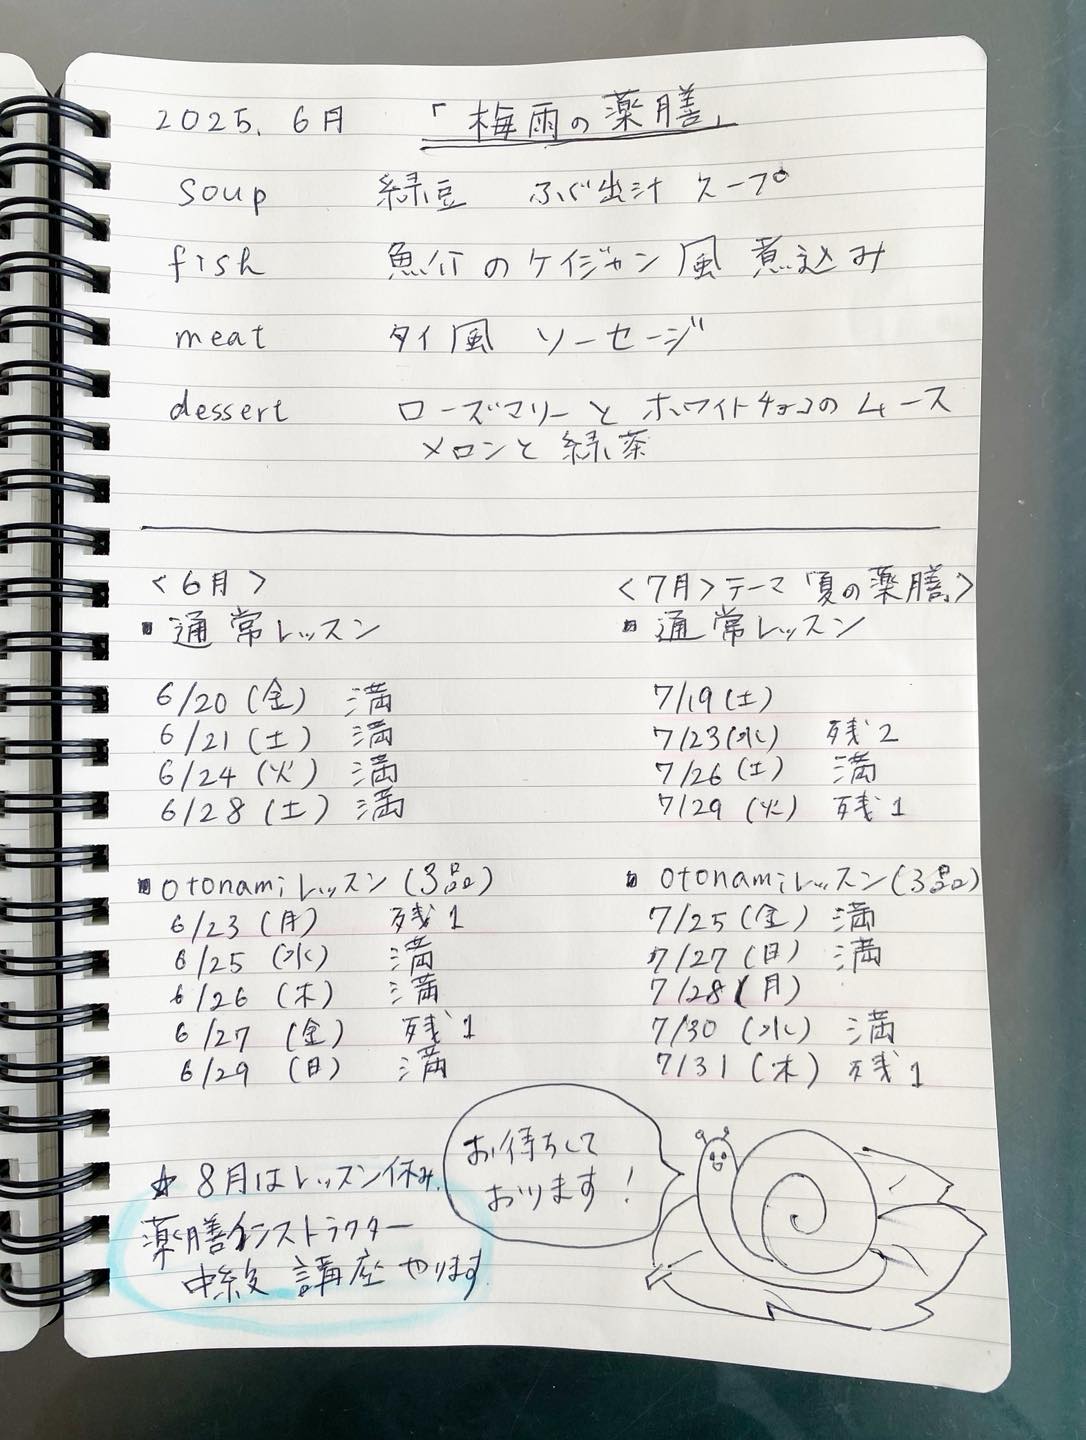 2025. 6月 「梅雨の薬膳」
soup 緑豆 ふぐ出汁 スープ
fish 魚介のケイジャン風 煮込み
meat タイ風 ソーセージ
dessert ローズマリーと ホワイトチョコのムース
メロンと緑茶
<6月>
▪通常レッスン
6/20(金) 満
6/21(土) 満
6/24(火) 満
6/28(土) 満
▪otonamiレッスン(3品)
6/23(月) 残1
6/25(水) 満
6/26(木) 満
6/27(金) 残1
6/29(日) 満
<7月>テーマ「夏の薬膳」>
▪通常レッスン
7/19(土)
7/23(水) 残2
7/26(土) 満
7/29(火) 残1
▪otonamiレッスン(3品)
7/25(金) 満
7/27(日) 満
7/28(月)
7/30(水) 満
7/31(木) 残1
☆8月はレッスン休み.
薬膳インストラクター
中級 講座やります.
お待ちして
おります!